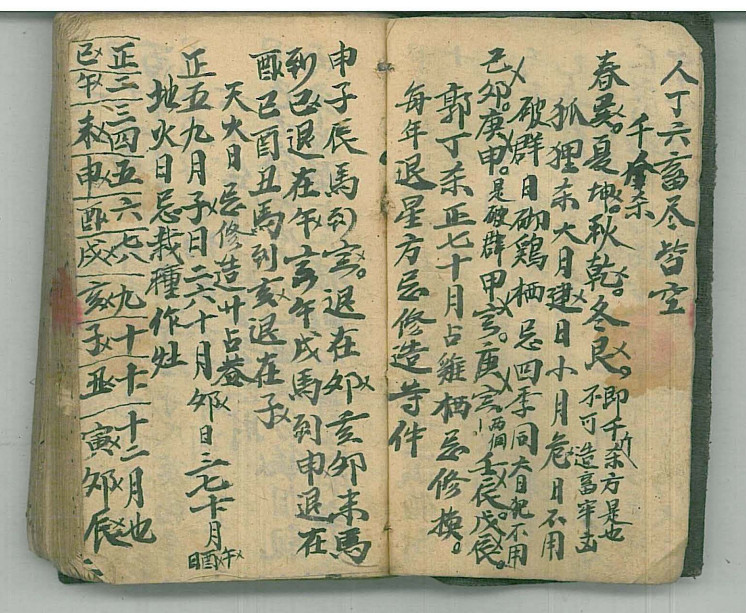 人丁六畜尽皆空
千金杀
春巽。夏坤。秋乾。冬艮。即千斤杀方是也
不可造畜牢击
狐狸杀大月建日小月危日不用
破群日砌鸡栖忌四季同大日犯不用
己卯。庚申。是破群甲寅。庚寅小两個壬辰戊辰。
郭丁杀正七十月占雞栖忌修换。
每年退星方忌修造等件
申子辰馬到寅。退在卯亥卯未馬
到巳退在午寅午戌馬到申退在
酉巳酉丑馬到亥退在子
天火日忌修造廿占盖
正五九月子日二六十月卯日三七十月午
酉日
地火日忌栽種作灶
正二三四五六七八九十十十二月也
巳午未申酉戌亥子丑寅卯辰